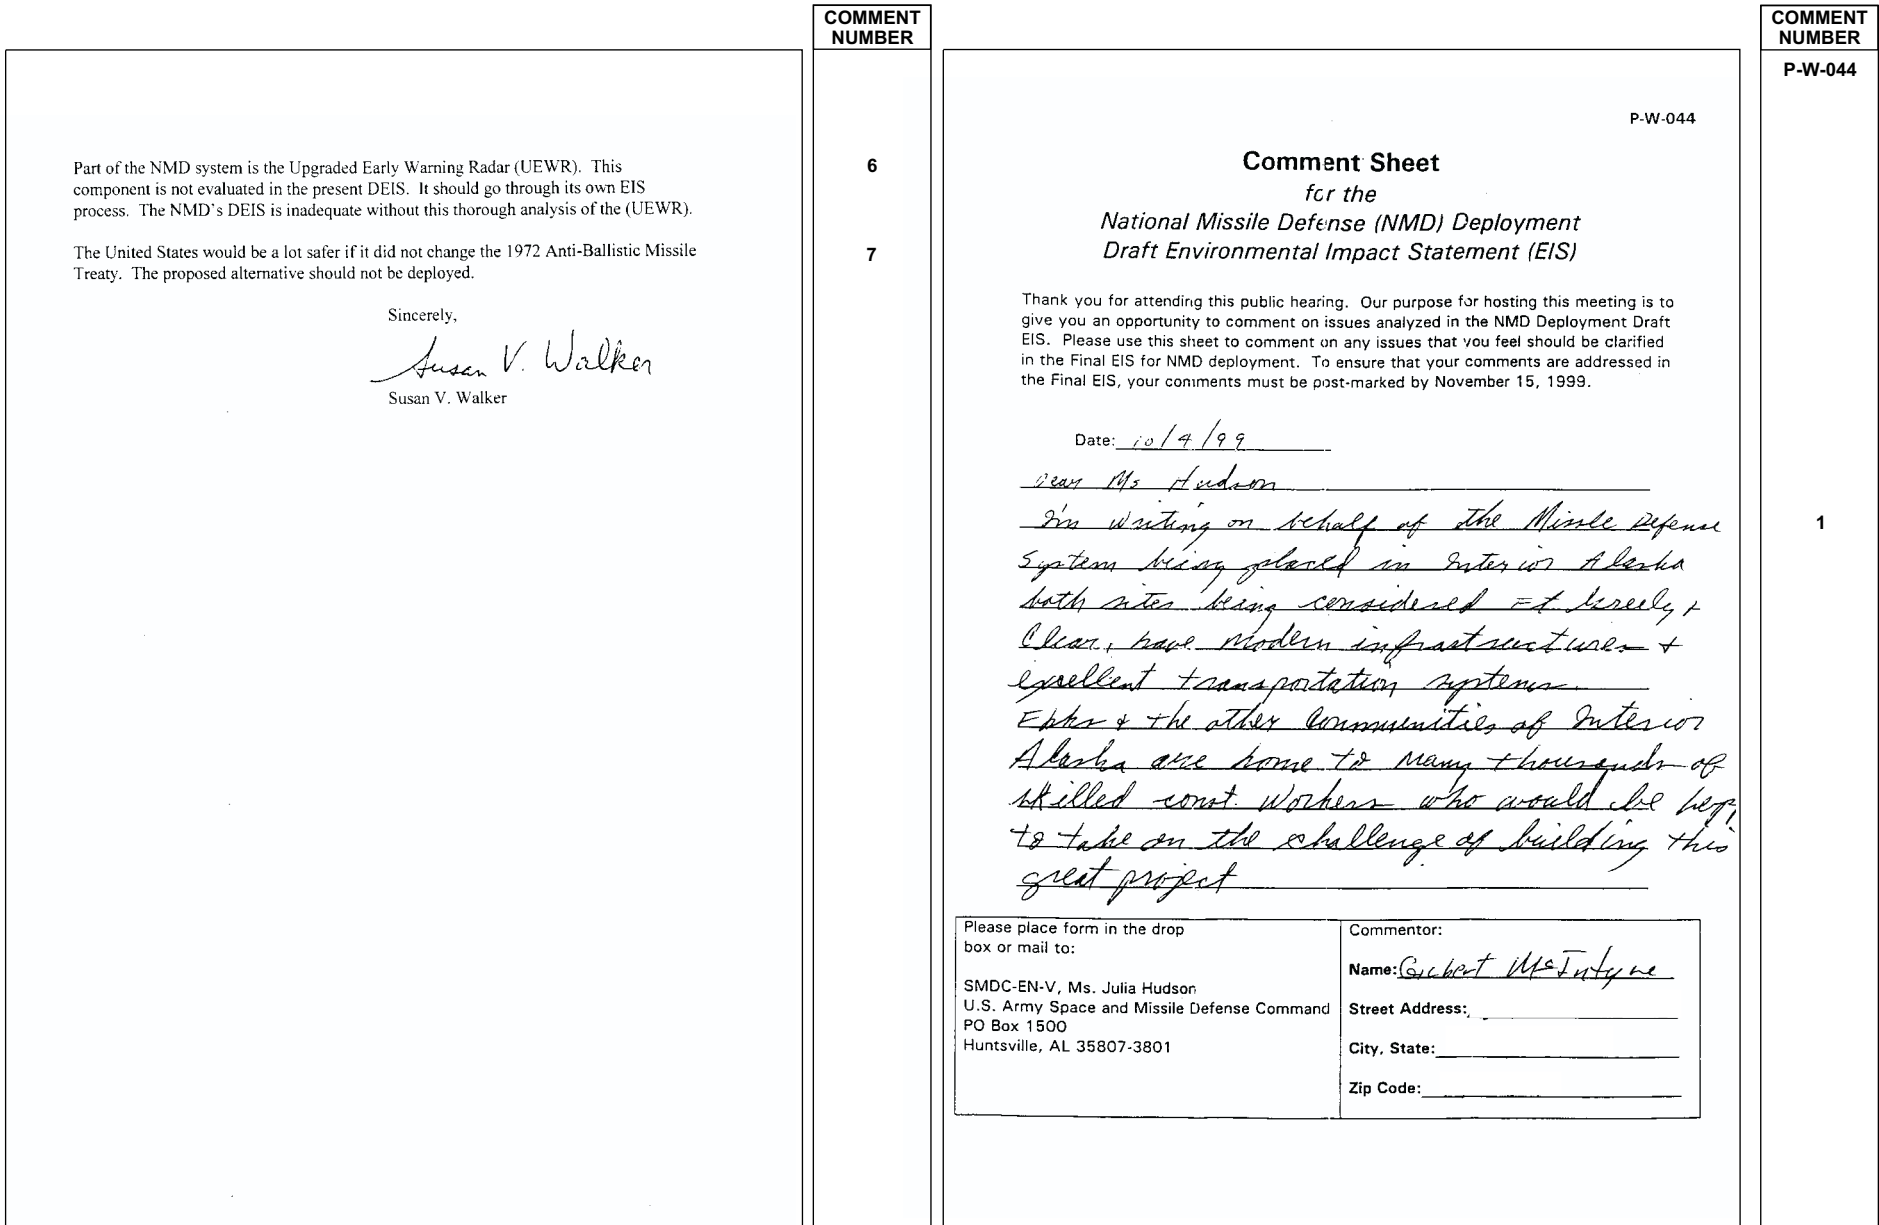 COMMENT
NUMBER
Part of the NMD system is the Upgraded Early Warning Radar (UEWR). This
component is not evaluated in the present DEIS. It should go through its own EIS
process. The NMD's DEIS is inadequate without this thorough analysis of the (UEWR).
6
The United States would be a lot safer if it did not change the 1972 Anti-Ballistic Missile
Treaty. The proposed alternative should not be deployed.
7
Sincerely,
Susan V. Walker
Susan V. Walker
COMMENT
NUMBER
P-W-044
P-W-044
Comment Sheet
for the
National Missile Defense (NMD) Deployment
Draft Environmental Impact Statement (EIS)
Thank you for attending this public hearing. Our purpose for hosting this meeting is to
give you an opportunity to comment on issues analyzed in the NMD Deployment Draft
EIS. Please use this sheet to comment on any issues that you feel should be clarified
in the Final EIS for NMD deployment. To ensure that your comments are addressed in
the Final EIS, your comments must be post-marked by November 15, 1999.
Date: 10/4/99
Dear Ms Hudson
I'm writing on behalf of the Missle Defense
1
System being placed in Interior Alaska
both sites being considered Ft Greely +
Clear, have modern infrastructures +
excellent transportation systems.
Fbks + the other Communities of Interior
Alaska are home to many thousands of
skilled const. workers who would be
to take on the challenge of building this
great project
Please place form in the drop
box or mail to:
SMDC-EN-V, Ms. Julia Hudson
U.S. Army Space and Missile Defense Command
PO Box 1500
Huntsville, AL 35807-3801
Commentor:
Name: McIntyre
Street Address:
City, State:
Zip Code: